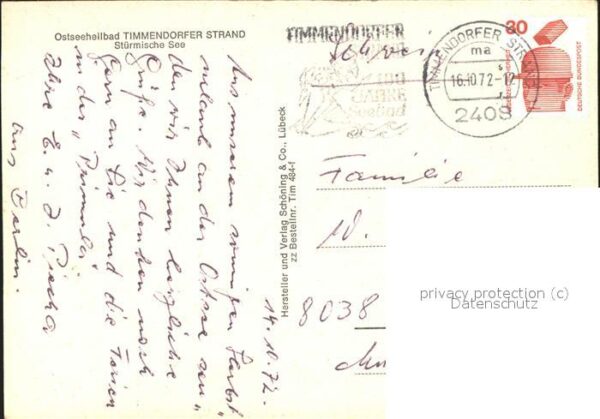 Ostseeheilbad TIMMENDORFER STRAND
Stürmische See
TIMMENDORFER
JAHRE
Seebad
TIMMENDORFER STRAND
ma
16.10.72-12
2408
30
DEUTSCHE BUNDESPOST
Schweiz
Aus unserem sonnigen Herbst
urlaub an der Ostsee sen-
den wir Ihnen herzliche
Grüße. Wir denken noch
gern an Sie und die Ferien
in der "Primula"
Ihre E. u. J.
aus Berlin.
14.10.72
Hersteller und Verlag Schöning & Co., Lübeck
zz Bestellnr. Tim 484-f
Familie
W.
8038
privacy protection (c)
Datenschutz